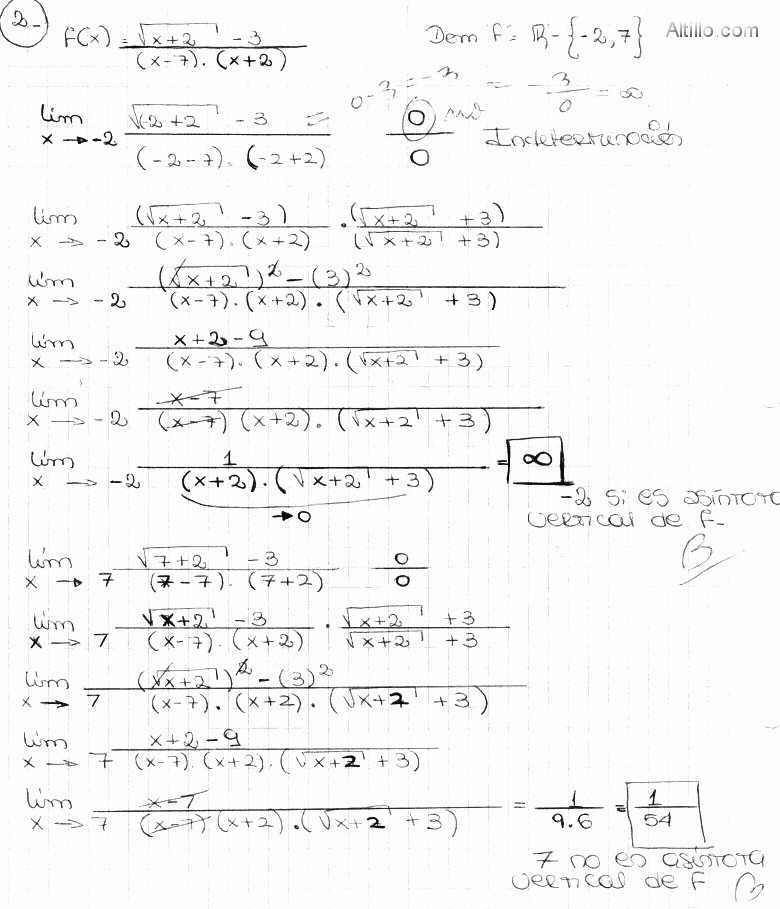 2-
f(x) = (√(x+2) - 3) / ((x-7).(x+2)) Dom f = ℝ - {-2, 7} Altillo.com
0-3 = -3 = -3/0 = ∞
lím x→-2 (√(-2+2) - 3) / ((-2-7).(-2+2)) = 0/0 Indeterminación
lím x→-2 (√(x+2) - 3) / ((x-7).(x+2)) . (√(x+2) + 3) / (√(x+2) + 3)
lím x→-2 ((√(x+2))² - (3)²) / ((x-7).(x+2).(√(x+2) + 3))
lím x→-2 (x+2-9) / ((x-7).(x+2).(√(x+2) + 3))
lím x→-2 (x-7) / ((x-7)(x+2).(√(x+2) + 3))
lím x→-2 1 / ((x+2).(√(x+2) + 3)) = ∞
→0
-2 si es asíntota
vertical de f-
B
lím x→7 (√(7+2) - 3) / ((7-7).(7+2)) 0/0
lím x→7 (√(x+2) - 3) / ((x-7).(x+2)) . (√(x+2) + 3) / (√(x+2) + 3)
lím x→7 ((√(x+2))² - (3)²) / ((x-7).(x+2).(√(x+2) + 3))
lím x→7 (x+2-9) / ((x-7).(x+2).(√(x+2) + 3))
lím x→7 (x-7) / ((x-7)(x+2).(√(x+2) + 3)) = 1/9.6 = 1/54
7 no es asíntota
vertical de f B